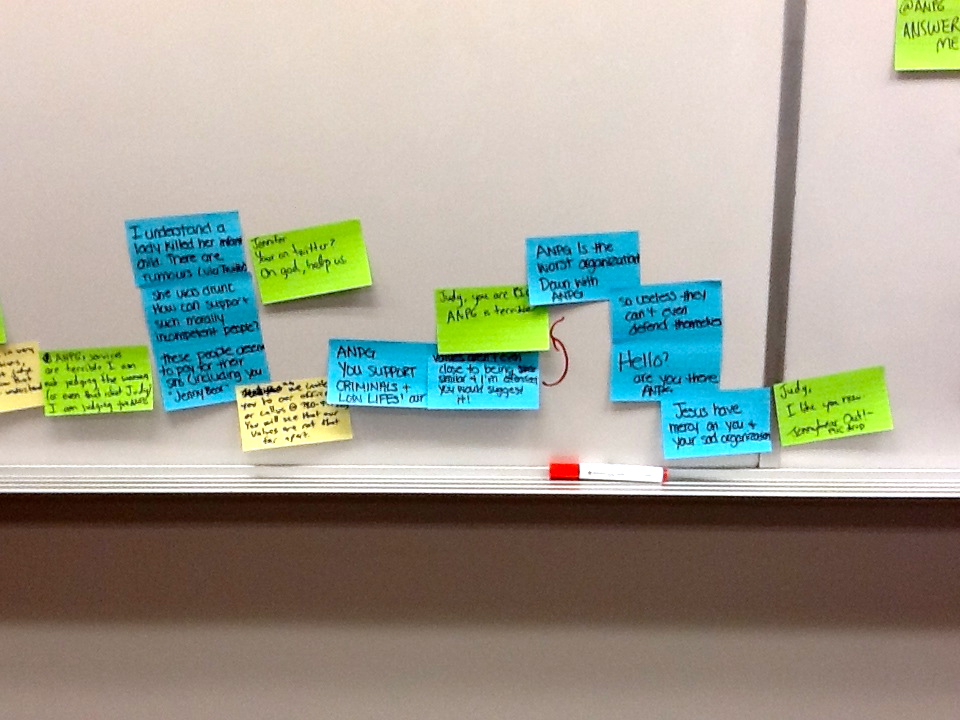 @ANPG
ANSWER
ME
I understand a
lady killed her infant
child. There are
rumours (via Twitter)
she was drunk
How can support
such morally
incompetent people?
these people deem
to pay for their
sins (including you
Jenny Bear
Jennifer
Your on twitter?
Oh god, help us
ANPG's services
are terrible I am
not judging the woman
or even that idiot Judy!
I am judging
you to our office
or call us @ 780
You will see that our
values are not that
far apart.
ANPG
YOU SUPPORT
CRIMINALS +
LOW LIFES! our
Judy, you are
ANPG is terrible
values aren't even
close to being
similar + I'm offended
you would suggest
it!
ANPG is the
worst organization
Down with
ANPG
so useless they
can't even
defend themselves
Hello?
are you there
ANPG
Jesus have
mercy on you +
your sad organization
Judy,
I like you now
Jennybear Out!-
mic drop